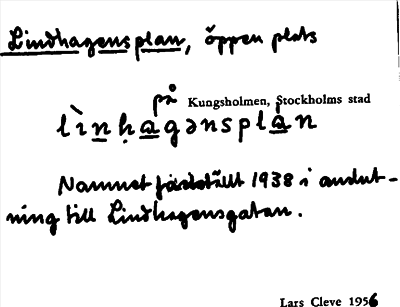 Lindhagensplan, öppen plats
på Kungsholmen, Stockholms stad
lìnḥagənsplån
Namnet fastställt 1938 i anslut-
ning till Lindhagensgatan.
Lars Cleve 1956